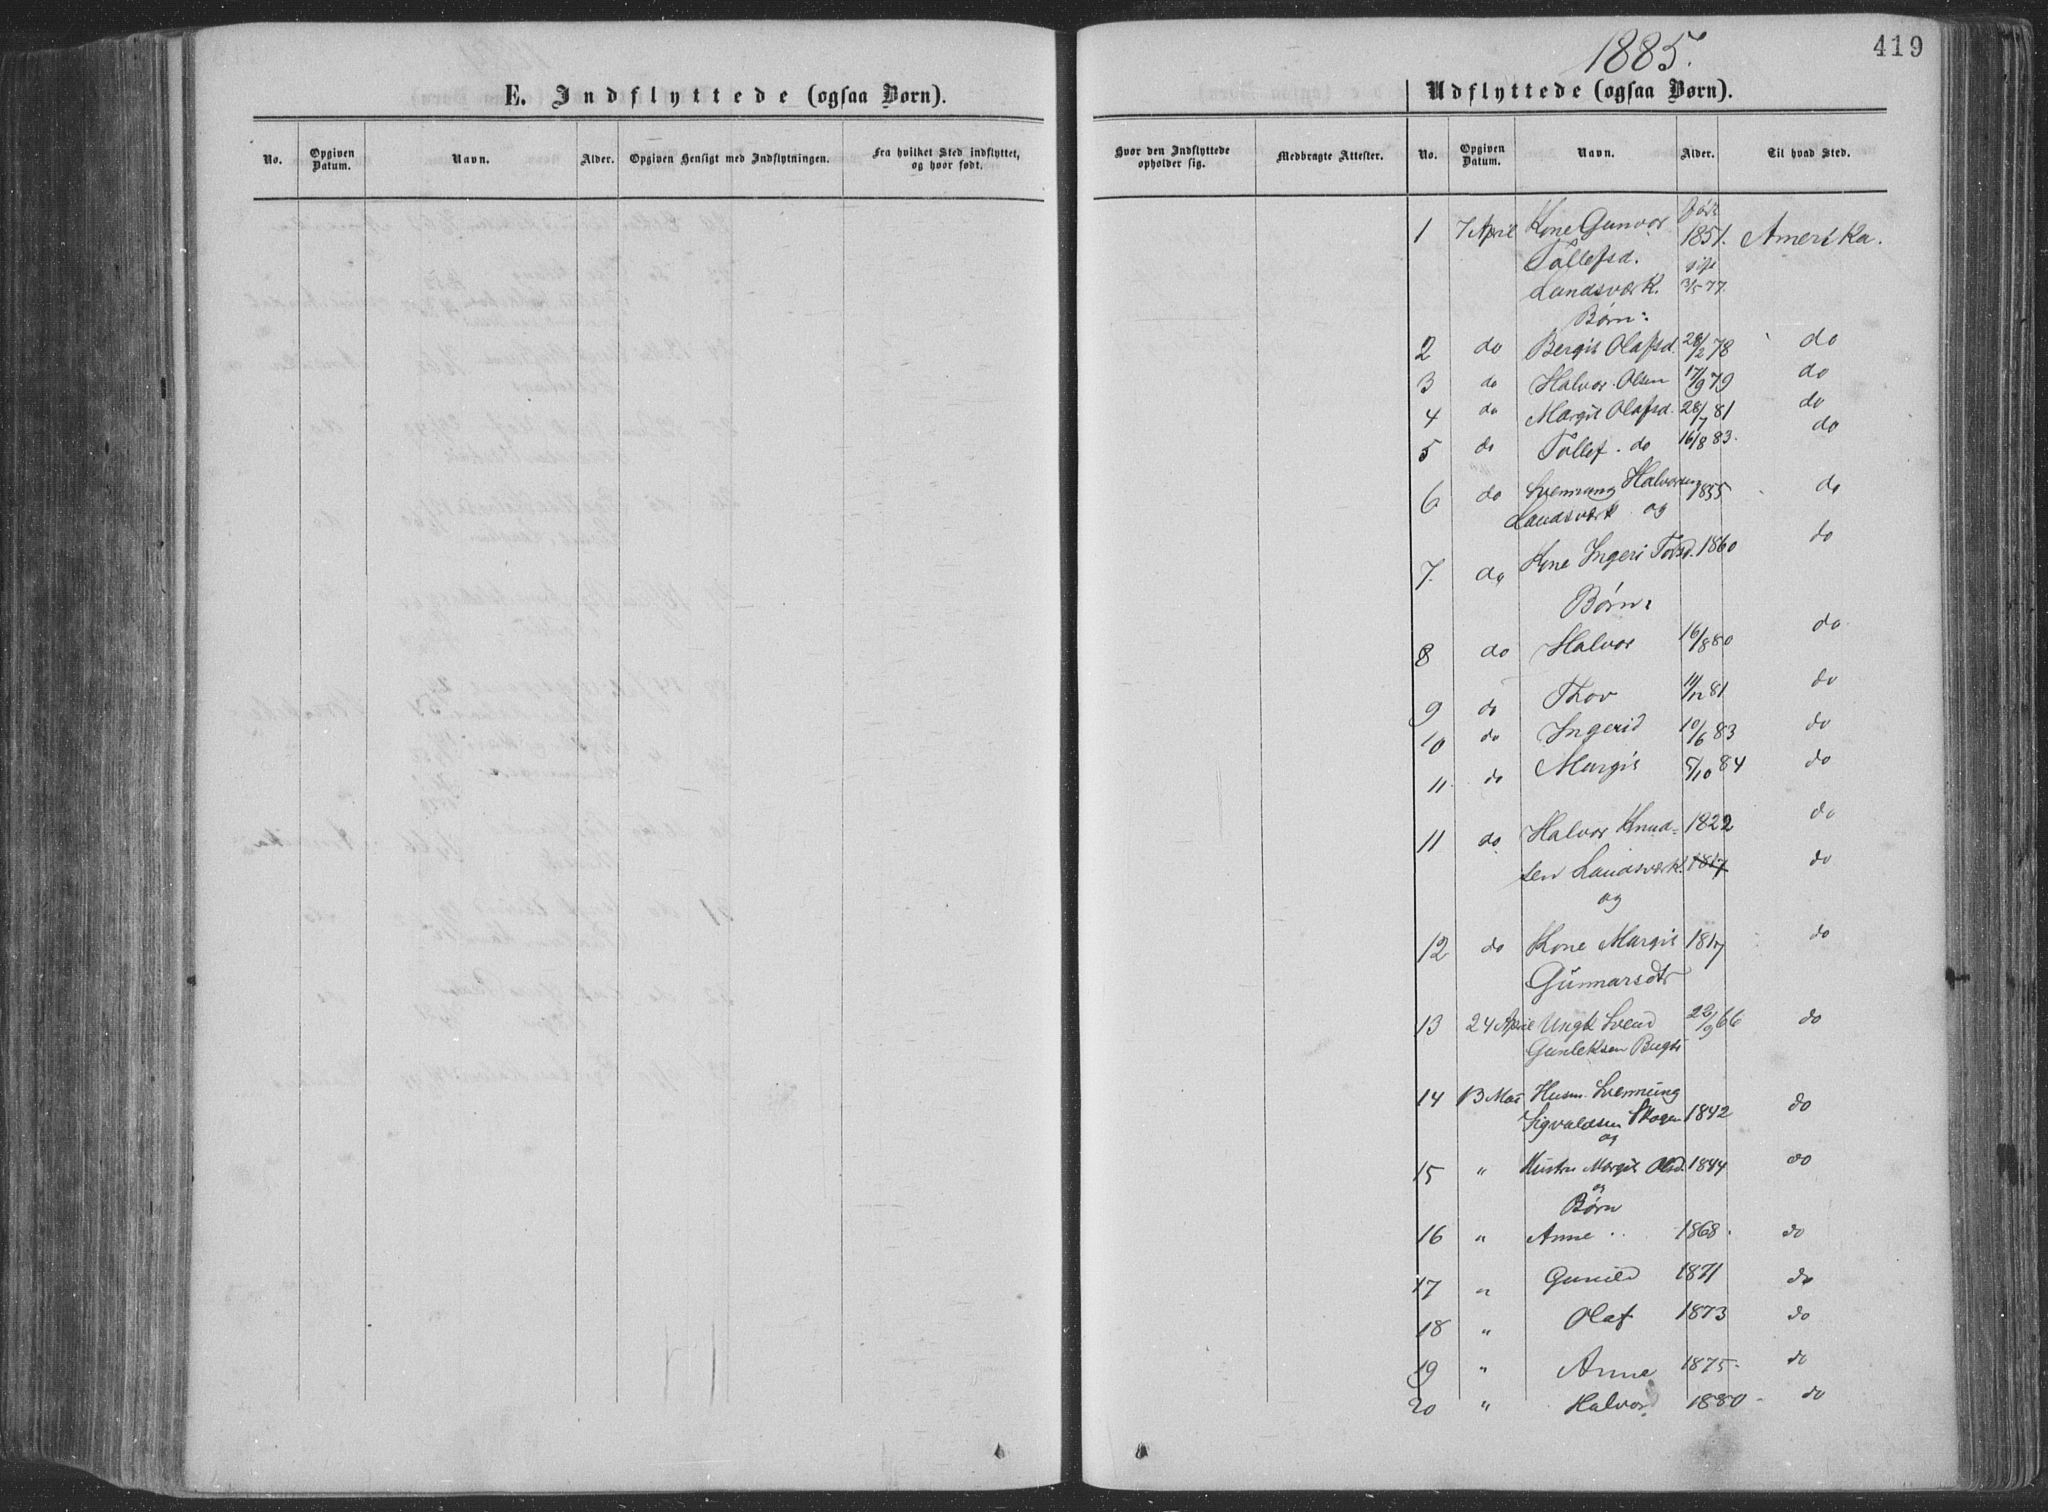 1885.
419
E. Indflyttede (ogsaa Børn).
Udflyttede (ogsaa Børn).
No. Opgiven Datum. Navn. Alder. Opgiven Hensigt med Indflytningen. Fra hvilket Sted indflyttet, og hvor født.
Hvor den Indflyttede opholder sig. Medbragte Attester. No. Opgiven Datum. Navn. Alder. Til hvad Sted.
1 7 April Kone Gunvor født 1851. Amerika.
Tollefsd.
Landsværk. 3/5 77.
Børn:
2 do Bergit Olafsd. 28/2 78 do
3 do Halvor Olsen 17/9 79 do
4 do Margit Olafsd. 28/7 81 do
5 do Tollef do 16/8 83. do
6 do Svennung Halvorsen 1855 do
Landsværk og
7. do Kone Ingeri Tovsd. 1860 do
Børn:
8 do Halvor 16/8 80 do
9 do Thov 11/12 81 do
10 do Ingerid 10/6 83 do
11 do Margit 5/10 84 do
11 do Halvor Knud- 1822 do
sen Landsværk. 1817 do
og
12 do Kone Margit 1817 do
Gunnarsdtr
13 24 April Ungk Svend 22/9 66 do
Gunleksen
14 13 Mai Husm. Svennung
Sigvaldsen Skogen 1842 do
og
15 " Hustru Margit Olsd. 1844 do
og
Børn
16 " Anne 1868. do
17 " Gunild 1871 do
18 " Olaf 1873 do
19 " Anne 1875. do
20 " Halvor 1880 do